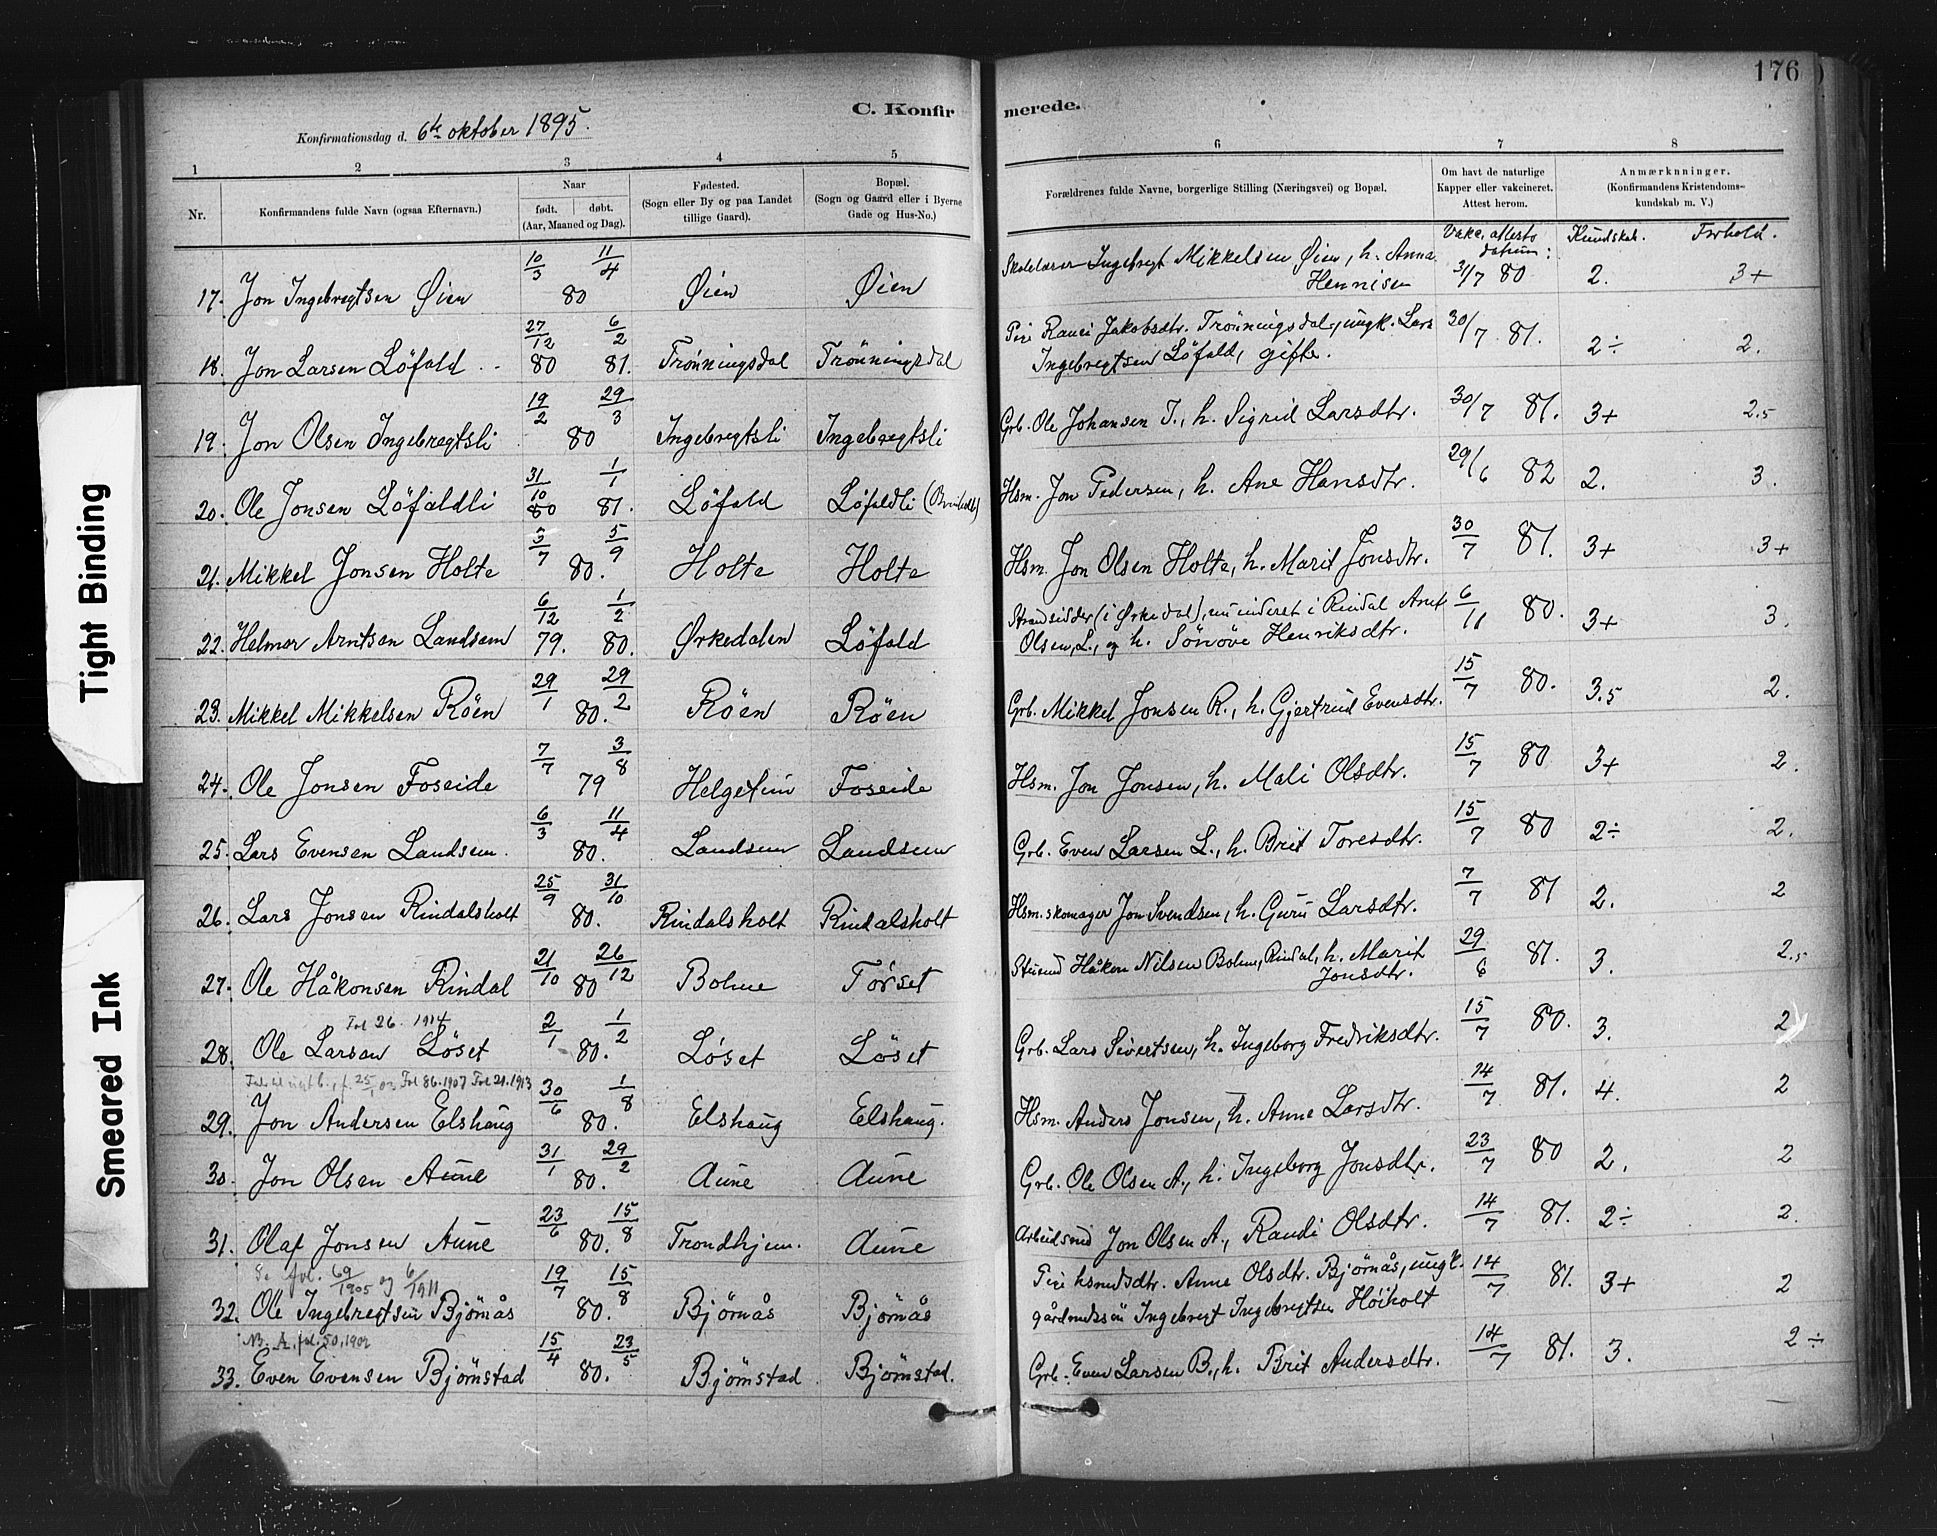 176
C. Konfirmerede.
Konfirmationsdag d. 6te oktober 1895.
1 2 3 4 5 6 7 8
Nr. Konfirmandens fulde Navn (ogsaa Efternavn.) Naar født. døbt. (Aar, Maaned og Dag). Fødested. (Sogn eller By og paa Landet tillige Gaard). Bopæl. (Sogn og Gaard eller i Byerne Gade og Hus-No.) Forældrenes fulde Navne, borgerlige Stilling (Næringsvei) og Bopæl. Om havt de naturlige Kapper eller vakcineret. Attest herom. Anmærkninger. (Konfirmandens Kristendomskundskab m. V.)
Vakc. attests datum: Kundskab. Forhold.
17. Jon Ingebregtsen Øien 10/3 11/4 80 Øien Øien Skolelærer Ingebregt Mikkelsen Øien, h. Anna Hennisen 31/7 80 2. 3+
18. Jon Larsen Löfald 27/12 80 6/2 81. Trønningsdal Trønningsdal Pige Jakobsdtr. Trønningsdal, ungk. Lars Ingebregtsen Löfald, gifte. 30/7 81. 2÷ 2.
19. Jon Olsen Ingebregtsli 19/2 29/3 80 Ingebregtsli Ingebregtsli Grb. Ole Johansen I., h. Sigrid Larsdtr. 30/7 81. 3+ 2.5
20. Ole Jonsen Löfaldli 31/10 80 1/1 81. Löfald Löfaldli Hsm. Jon Pedersen, h. Ane Hansdtr. 29/6 82 2. 3.
21. Mikkel Jonsen Holte 3/7 5/9 80. Holte Holte Hsm. Jon Olsen Holte, h. Marit Jonsdtr. 30/7 81. 3+ 3+
22. Helmer Arntsen Landsem 6/12 79. 1/2 80. Ørkedalen Löfald Strandsidder (i Ørkedal), i Rindal Arnt Olsen L., og h. Sönöve Henriksdtr. 6/11 80. 3+ 3.
23. Mikkel Mikkelsen Röen 29/1 29/2 80. Röen Röen Grb. Mikkel Jonsen R., h. Gjertrud Evensdtr. 15/7 80. 3.5 2.
24. Ole Jonsen Foseide 7/7 3/8 79 Helgetun Foseide Hsm. Jon Jonsen, h. Mali Olsdtr. 15/7 80 3+ 2.
25. Lars Evensen Landsem. 6/3 11/4 80. Landsem Landsem Grb. Even Larsen L., h. Brit Toresdtr. 15/7 80 2÷ 2.
26. Lars Jonsen Rindalsholt 25/9 31/10 80. Rindalsholt Rindalsholt Hsm. skomager Jon Svendsen, h. Guru Larsdtr. 7/7 81 2. 2
27. Ole Håkonsen Rindal 21/10 26/12 80 Bolme Törset Håkon Nilsen Bolme, Rindal, h. Marit Jonsdtr. 29/6 81. 3. 2.5
Fol 26. 1914
28. Ole Larsen Löset 2/1 1/2 80. Löset Löset Grb. Lars Sivertsen, h. Ingeborg Fredriksdtr. 15/7 80. 3. 2
Fol 86. 1907 Fol 21. 1913
29. Jon Andersen Elshaug 30/6 1/8 80. Elshaug Elshaug. Hsm. Anders Jonsen, h. Anne Larsdtr. 14/7 81. 4. 2
30. Jon Olsen Aune 31/1 29/2 80. Aune Aune Grb. Ole Olsen A., h. Ingeborg Jonsdtr. 23/7 80 2. 2
31. Olaf Jonsen Aune 23/6 15/8 80. Trondhjem. Aune Arbeidsmd Jon Olsen A., Randi Olsdtr. 14/7 81. 2÷ 2.
Se fol. 69/1905 og 6/1911
32. Ole Ingebregtsen Bjørnås 19/7 15/8 80. Bjørnås Bjørnås Pige hsmdsdtr. Anne Olsdtr. Bjørnås, ungk. gårdmdssön Ingebregt Ingebregtsen Höiholt 14/7 81. 3+ 2
N. A. fol. 50, 1902
33. Even Evensen Bjørnstad 15/4 23/5 80. Bjørnstad Bjørnstad. Grb. Even Larsen B., h. Brit Andersdtr. 14/7 81. 3. 2÷
Tight Binding
Smeared Ink